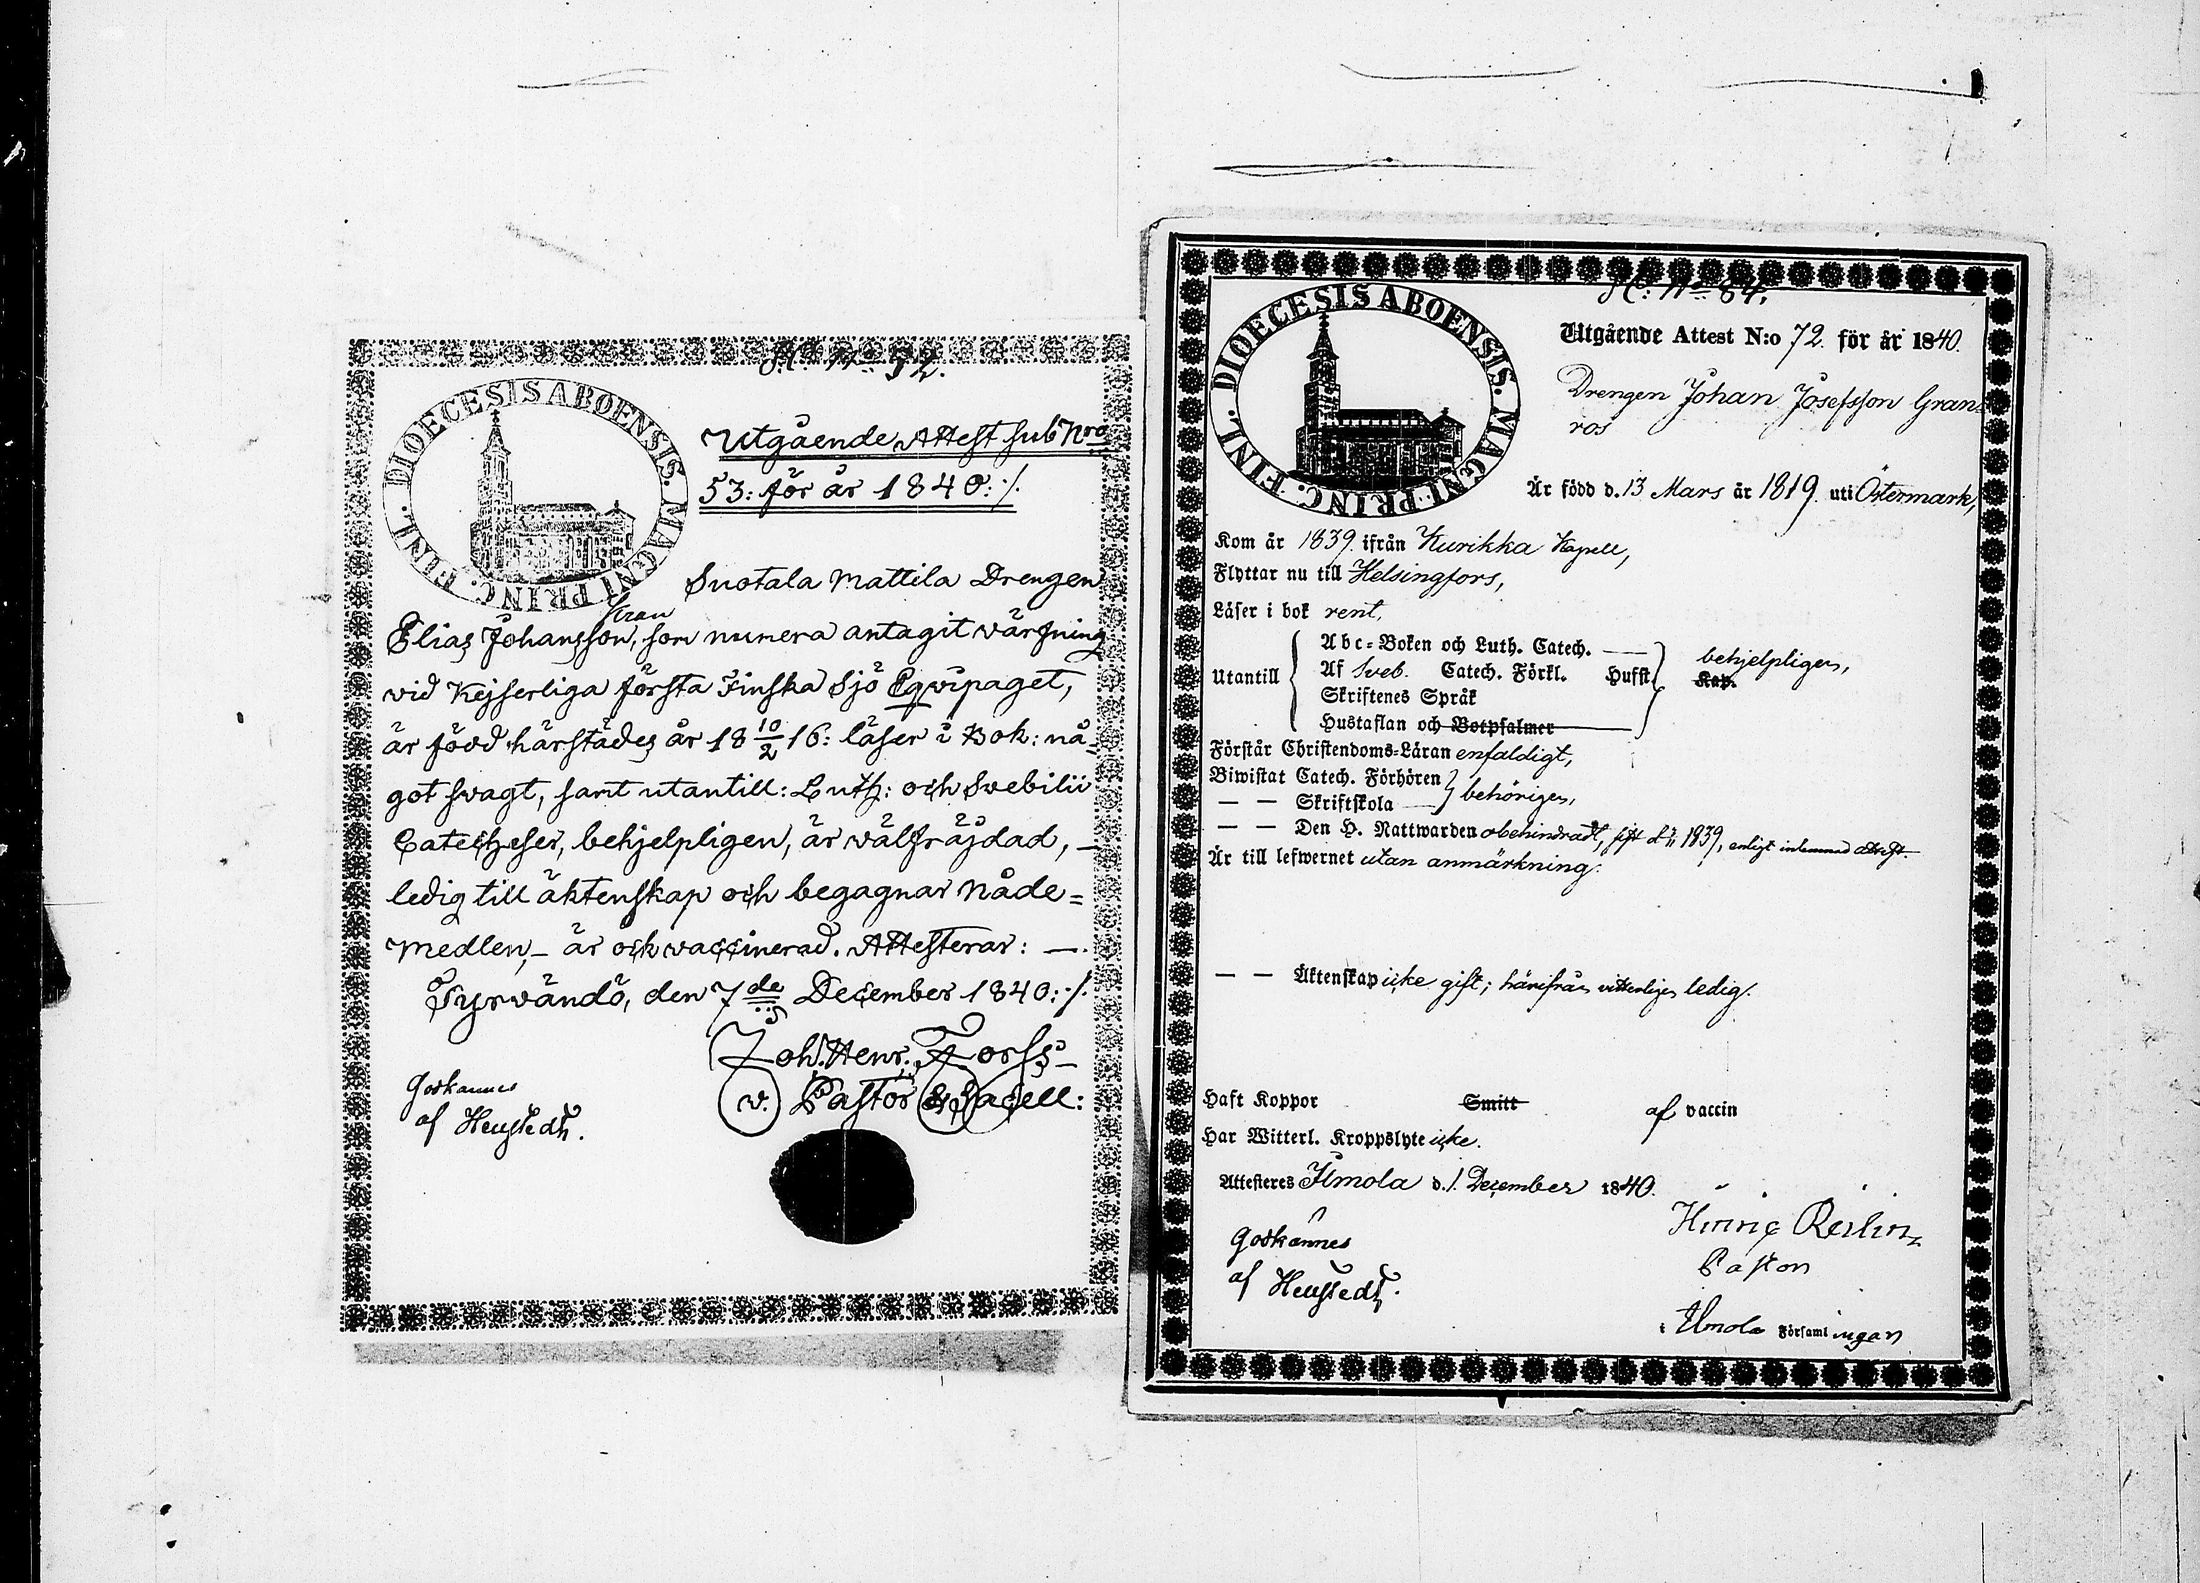 DIOECESIS ABOENSIS. MAGNI PRINC. FINL.
Utgående Attest sub Nro
53: för år 1840:
Suotala Mattila Drengen
Elias Johansson, som numera antagit värfning
vid Kejserliga första Finska Sjö Eqvipaget,
är född härstädes år 18 10/2 16: läser i Bok: nå-
got svagt, samt utantill: Luth: och Svebilii
Catecheser, behjelpligen, är välfräjdad, —
ledig till äktenskap och begagnar Nåde=
medlen, – är och vaccinerad. Attesterar: —
Tyrvändö, den 7de December 1840:
Joh. Henr. Forss
v. Pastor & Sacell:
Godkännes
af Heustedt.
DIOECESIS ABOENSIS. MAGNI PRINC. FINL.
N:o 84.
Utgående Attest N:o 72. för år 1840.
Drengen Johan Josefsson Gran=
ros
Är född d. 13 Mars år 1819. uti Östermark,
Kom år 1839. ifrån Kurikka Kapell,
Flyttar nu till Helsingfors,
Läser i bok rent,
Utantill
Abc-Boken och Luth. Catech. —
Af Sveb. Catech. Förkl. Hufst. Kap.
behjelpligen,
Skriftenes Språk
Hustaflan och Botpsalmer
Förstår Christendoms-Läran enfaldigt,
Biwistat Catech. Förhören
— — Skriftskola — behörigen,
— — Den H. Nattwarden obehindradt, 1839, enligt
Är till lefwernet utan anmärkning.
— — Äktenskap icke gift; härifrån vitterligen ledig.
Haft Koppor Smitt af vaccin
Har Witterl. Kroppslyte icke.
Attesteres Ilmola d. 1. December 1840.
Pastor
i Ilmola Församlingan
Godkännes
af Heustedt.